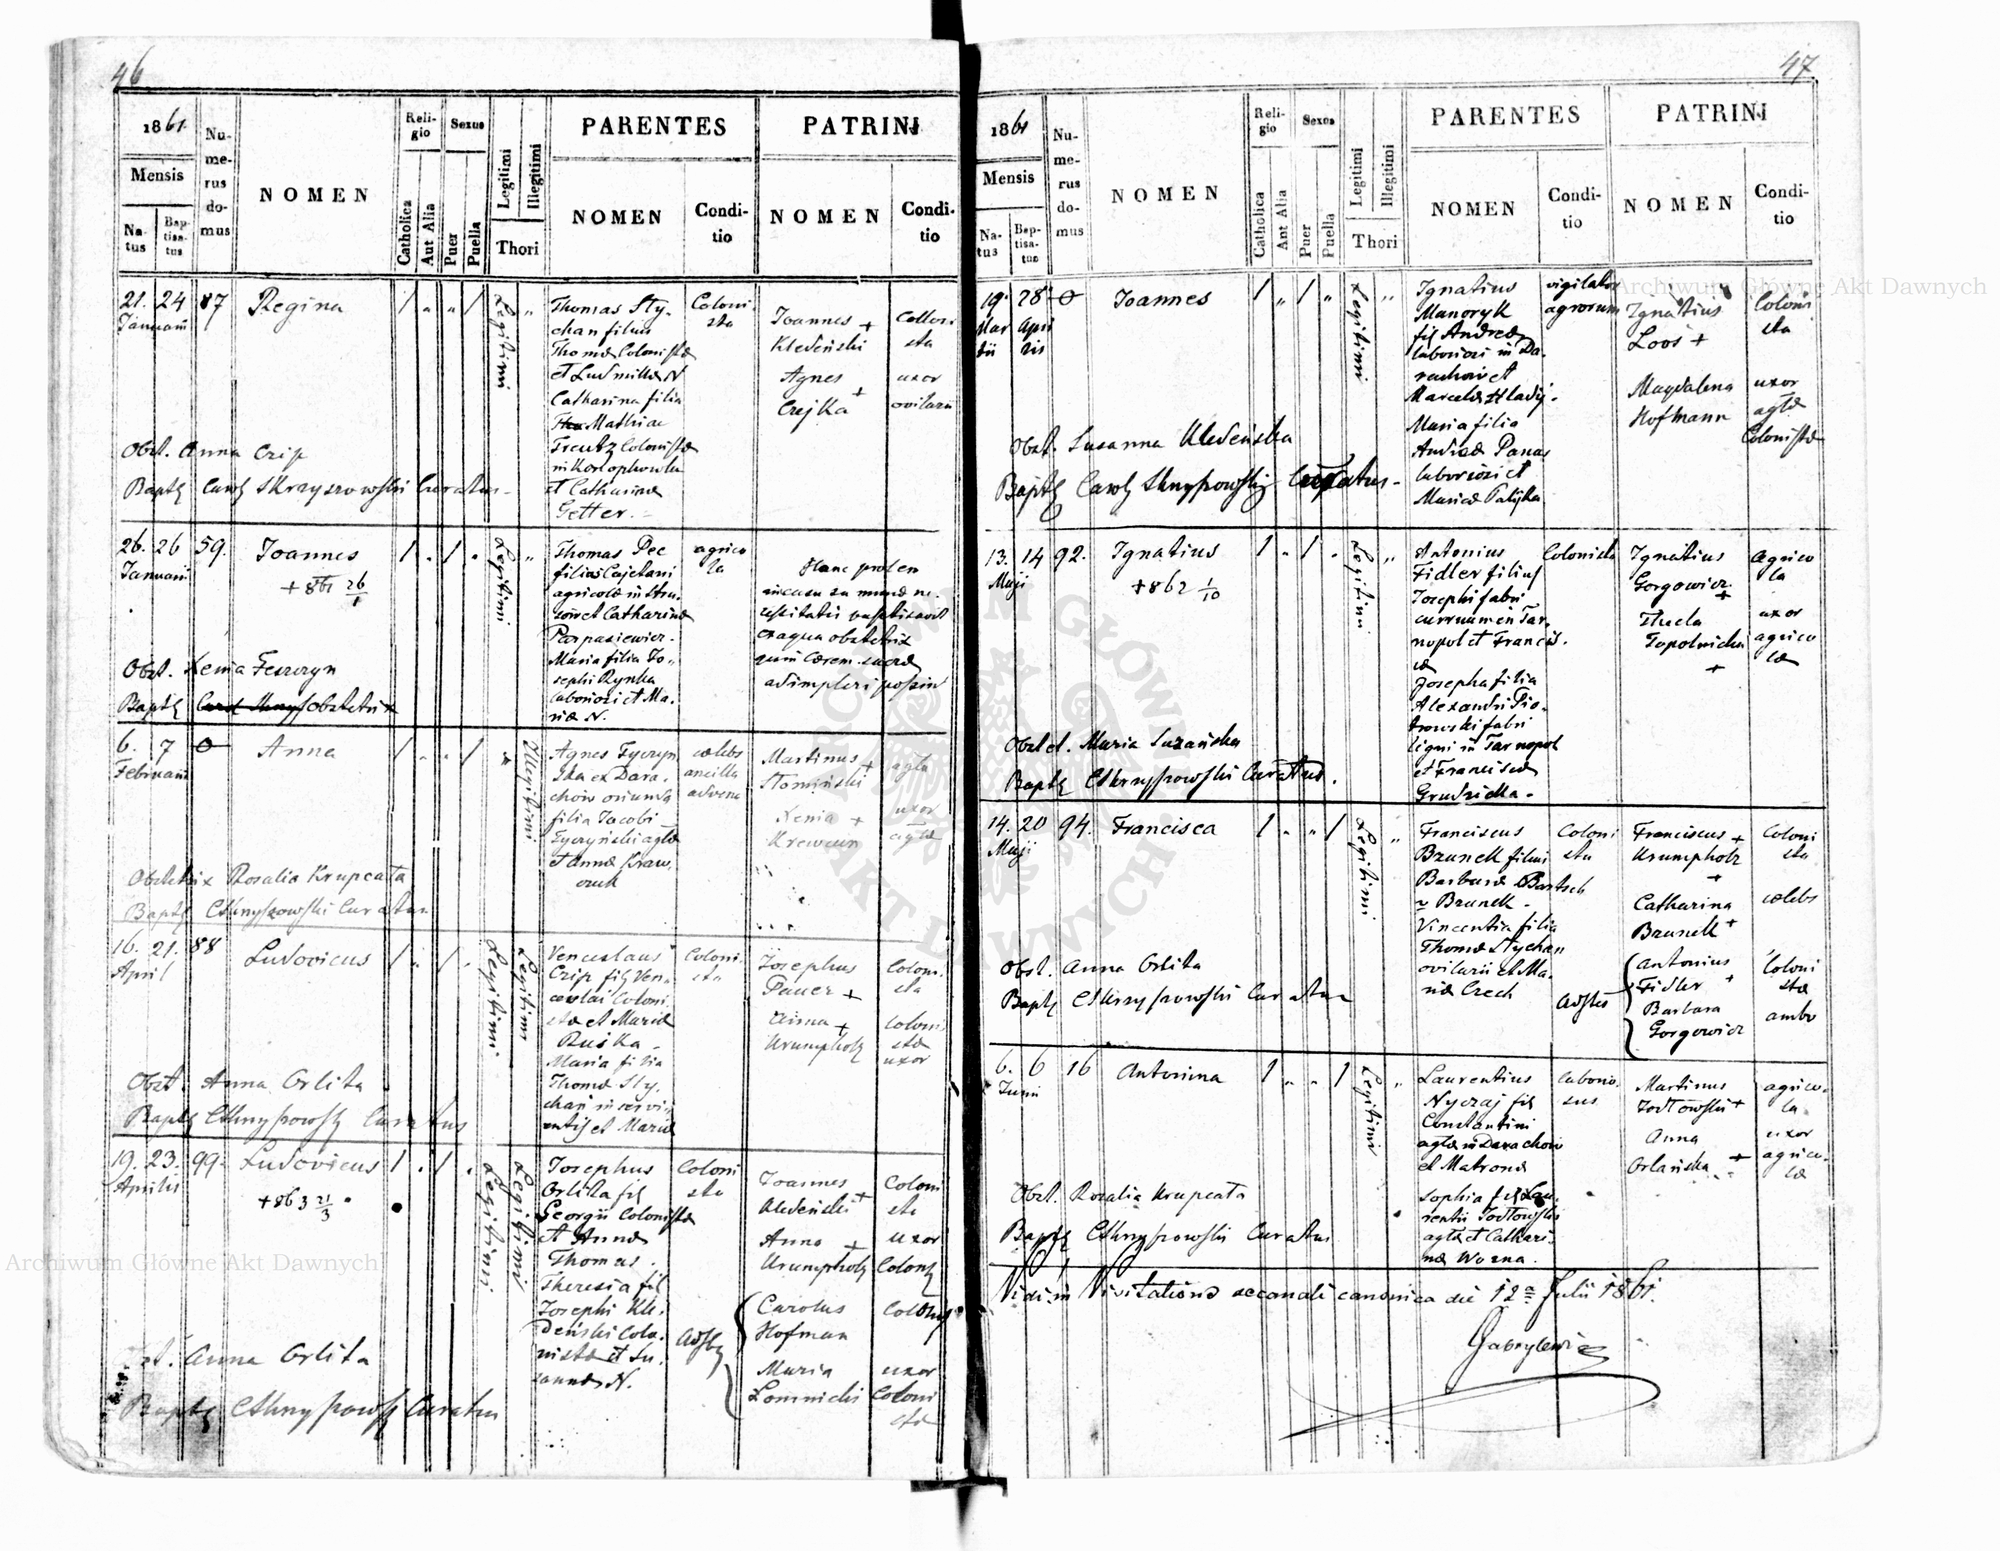 46
1861.
Mensis
Natus
Baptisatus
Numerus domus
NOMEN
Religio
Catholica
Aut Alia
Sexus
Puer
Puella
Legitimi
Illegitimi
Thori
PARENTES
NOMEN
Conditio
PATRINI
NOMEN
Conditio
21. 24 87 Regina 1 „ „ 1 Legitimi „
Januarii
Thomas Sty-
chan filius
Thomæ Colonistæ
et Ludmillæ N
Catharina filia
Mathiae
Treutz Colonistæ
et Catharinæ
Getter.
Coloni
sta
Joannes +
Kledeński
Agnes +
Czejka
Coloni
sta
uxor
ovilarii
Obst. Anna Crip
Baptz Carol Skrzyszowski Curatus.
26. 26 59. Joannes 1 . 1 . Legitimi „
Januarii
+ 861 26/1
Thomas Pec
filius Cajetani
agricolæ in Stru-
sow et Catharinæ
Parpasiewicz.
Maria filia Jo-
sephi Rynka
laboriosi et Ma-
riæ N.
agrico
la
Hanc prolem
necessitatis baptisavit
ex aqua obstetrix
adimpleri possint
Obst. Xenia Feszczyn
Baptz obstetrix
6. 7 0 Anna 1 . . 1 „ Illegitimi
Februarii
Agnes Tyczyn
ska ex Dara-
chów oriunda
filia Jacobi
Tyczyński aglæ
et Annæ Kraw
czuk
cælebs
ancilla
advena
Martinus +
Słomiński
Xenia +
Krewcun
agla
uxor
aglæ
Obstetrix Rosalia Krupcała
Baptz CSkrzyszowski Curatus
16. 21. 88 Ludovicus 1 . 1 . Legitimi Legitimi
April
Venceslaus
Crip fil Ven-
ceslai Coloni-
stæ et Mariæ
Ruska.
Maria filia
Thomæ Sty-
chan inservi-
entis et Mariæ
Coloni
sta
Josephus
Pauer +
Anna +
Krumpholz
Coloni
sta
Coloni
stæ
uxor
Obst. Anna Orlita
Baptz CSkrzyszowski Curatus
19. 23. 99. Ludovicus 1 . 1 . Legitimi Legitimi
Aprilis
+ 863 21/3
Josephus
Orlita fil
Georgii Colonistæ
et Annæ
Thomas.
Theresia fil
Josephi Kle-
deński Colo-
nistæ et Su-
sannæ N.
Coloni
sta
Joannes
Kledeński +
Anna +
Krumpholz
Carolus
Hofman
Maria
Lomnicki
Coloni
sta
uxor
Colonistæ
uxor
Coloni
stæ
Obst. Anna Orlita
Baptz CSkrzyszowski Curatus
47
1861
Mensis
Natus
Baptisatus
Numerus domus
NOMEN
Religio
Catholica
Aut Alia
Sexus
Puer
Puella
Legitimi
Illegitimi
Thori
PARENTES
NOMEN
Conditio
PATRINI
NOMEN
Conditio
19. 28 0 Joannes 1 „ 1 „ Legitimi „
Mar Apri
tii lis
Ignatius
Manoryk
fil Andreæ
laboriosi in Da-
rachow et
Marcelæ Hladij.
Maria filia
Andreæ Panas
laboriosi et
Mariæ Palijka
vigilator
agrorum
Ignatius
Loos +
Magdalena
Hofmann
Coloni
sta
uxor
aglæ
Colonistæ
Obst. Susanna Kledeńska
Baptz Carol Skrzyszowski Curatus.
13. 14 92. Ignatius 1 . 1 . Legitimi „
Maji
+ 862 1/10
Antonius
Fidler filius
Josephi fabri
curruum in Tar-
nopol et Francis-
cæ
Josepha filia
Alexandri Pio-
trowski fabri
ligni in Tarnopol
et Franciscæ
Grudzicka.
Colonista
Ignatius
Gorgowicz +
Thecla
Topolnicka +
agrico
la
uxor
agrico
læ
Obstet. Maria Suzańska
Baptz CSkrzyszowski Curatus.
14. 20 94. Francisca 1 . . 1 Legitimi „
Maji
Franciscus
Brunek filius
Barbaræ Bartsch
Brunek.
Vincentia filia
Thomæ Stychan
ovilarii et Ma-
riæ Czech
Coloni
sta
Franciscus +
Krumpholz
Catharina
Brunek +
Antonius
Fidler +
Barbara
Gorgowicz
Coloni
sta
cælebs
Coloni
stæ
ambo
Obst. Anna Orlita
Baptz CSkrzyszowski Curatus
6. 6 16 Antonina 1 „ „ 1 Legitimi „
Junii
Laurentius
Nyczaj fil
Constantini
aglæ in Darachow
et Matronæ
Sophia fil Lau-
rentii Jodłowski
aglæ et Cathari-
næ Wozna.
laborio-
sus
Martinus
Jodłowski +
Anna
Orlańska +
agrico-
la
uxor
agrico-
læ
Obst. Rosalia Krupcała
Baptz CSkrzyszowski Curatus
Vidi in Visitatione decanali canonica die 12a Julii 1861.
Gabrylewicz
Archiwum Główne Akt Dawnych
Archiwum Główne Akt Dawnych
ARCHIWUM GŁÓWNE AKT DAWNYCH